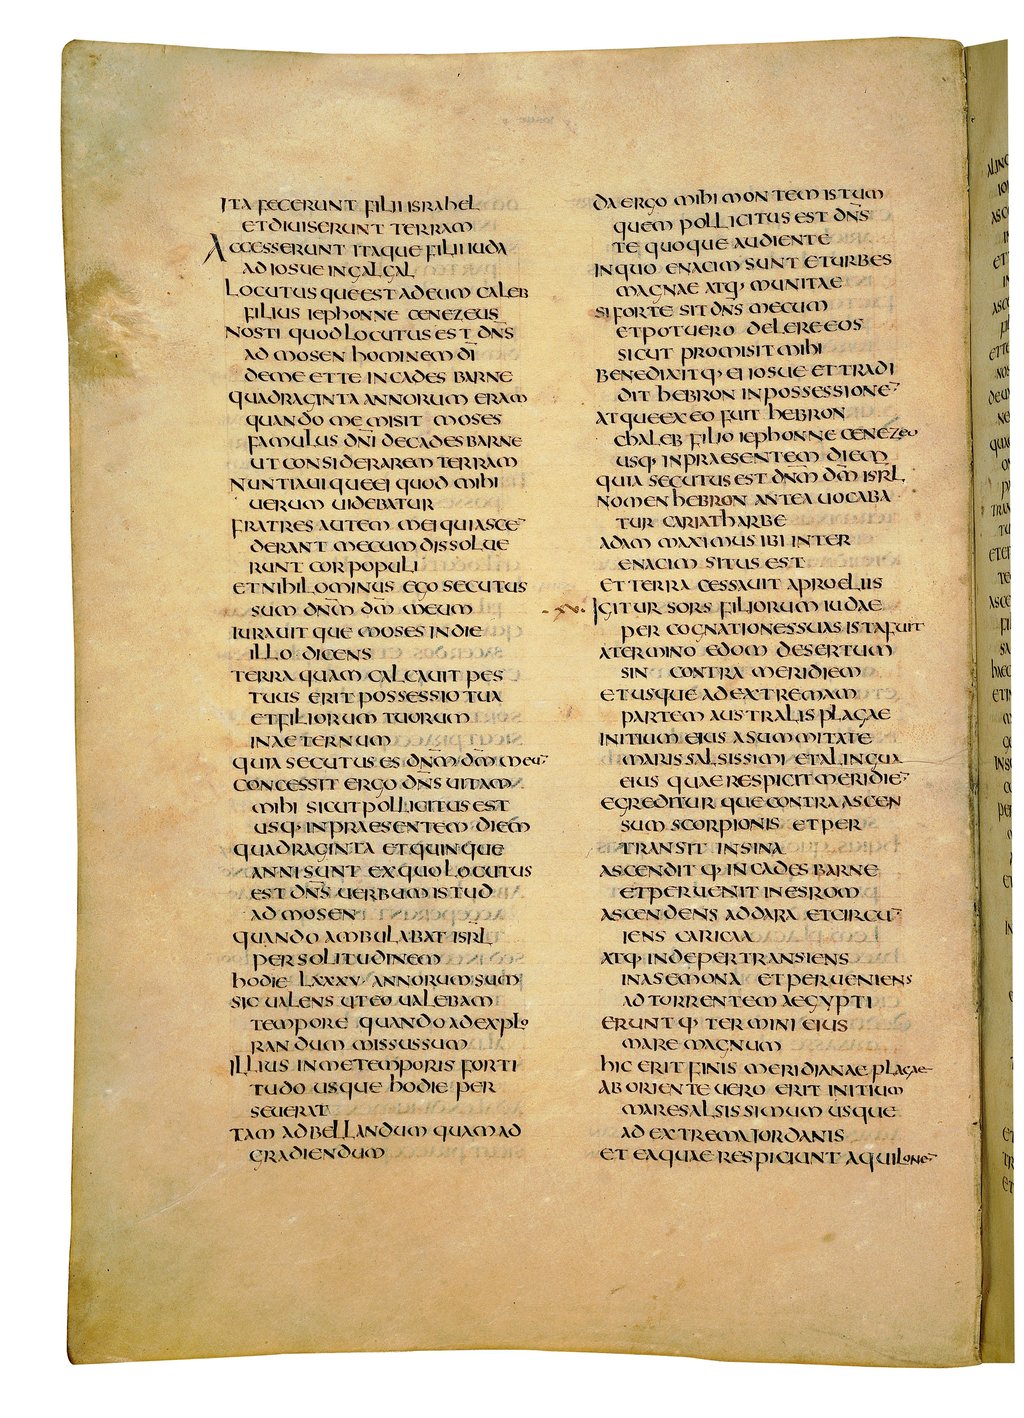 ITA FECERUNT FILII ISRAHEL
ET DIUISERUNT TERRAM
ACCESSERUNT ITAQUE FILII IUDA
AD IOSUE IN GALGAL
LOCUTUSQUE EST AD EUM CALEB
FILIUS IEPHONNE CENEZEUS
NOSTI QUOD LOCUTUS EST DN̅S
AD MOSEN HOMINEM DI̅
DE ME ET TE IN CADES BARNE
QUADRAGINTA ANNORUM ERAM
QUANDO ME MISIT MOSES
FAMULUS DN̅I DE CADES BARNE
UT CONSIDERAREM TERRAM
NUNTIAUIQUE EI QUOD MIHI
UERUM UIDEBATUR
FRATRES AUTEM MEI QUI ASCE̅
DERANT MECUM DISSOLUE
RUNT COR POPULI
ET NIHILOMINUS EGO SECUTUS
SUM DN̅M DM̅ MEUM
IURAUITQUE MOSES IN DIE
ILLO DICENS
TERRA QUAM CALCAUIT PES
TUUS ERIT POSSESSIO TUA
ET FILIORUM TUORUM
IN AETERNUM
QUIA SECUTUS ES DN̅M DM̅ MEU̅
CONCESSIT ERGO DN̅S UITAM
MIHI SICUT POLLICITUS EST
USQ· IN PRAESENTEM DIEM
QUADRAGINTA ET QUINQUE
ANNI SUNT EX QUO LOCUTUS
EST DN̅S UERBUM ISTUD
AD MOSEN
QUANDO AMBULABAT ISRL̅
PER SOLITUDINEM
HODIE LXXXV· ANNORUM SUM
SIC UALENS UT EO UALEBAM
TEMPORE QUANDO AD EXPLO
RANDUM MISSUS SUM
ILLIUS IN ME TEMPORIS FORTI
TUDO USQUE HODIE PER
SEUERAT
TAM AD BELLANDUM QUAM AD
GRADIENDUM
DA ERGO MIHI MONTEM ISTUM
QUEM POLLICITUS EST DN̅S
TE QUOQUE AUDIENTE
IN QUO ENACIM SUNT ET URBES
MAGNAE ATQ· MUNITAE
SI FORTE SIT DN̅S MECUM
ET POTUERO DELERE EOS
SICUT PROMISIT MIHI
BENEDIXITQ· EI IOSUE ET TRADI
DIT HEBRON IN POSSESSIONE̅
ATQUE EX EO FUIT HEBRON
CHALEB FILIO IEPHONNE CENEZEO
USQ· IN PRAESENTEM DIEM
QUIA SECUTUS EST DN̅M DM̅ ISRL̅
NOMEN HEBRON ANTEA UOCABA
TUR CARIATHARBE
ADAM MAXIMUS IBI INTER
ENACIM SITUS EST
ET TERRA CESSAUIT A PROELIIS
·XV· IGITUR SORS FILIORUM IUDAE
PER COGNATIONES SUAS ISTA FUIT
A TERMINO EDOM DESERTUM
SIN CONTRA MERIDIEM
ET USQUE AD EXTREMAM
PARTEM AUSTRALIS PLAGAE
INITIUM EIUS A SUMMITATE
MARIS SALSISSIMI ET A LINGUA
EIUS QUAE RESPICIT MERIDIE̅
EGREDITURQUE CONTRA ASCEN
SUM SCORPIONIS ET PER
TRANSIT IN SINA
ASCENDITQ· IN CADES BARNE
ET PERUENIT IN ESROM
ASCENDENS AD DARA ET CIRCU̅
IENS CARICAA
ATQ· INDE PERTRANSIENS
IN ASEMONA ET PERUENIENS
AD TORRENTEM AEGYPTI
ERUNTQ· TERMINI EIUS
MARE MAGNUM
HIC ERIT FINIS MERIDIANAE PLAGAE
AB ORIENTE UERO ERIT INITIUM
MARE SALSISSIMUM USQUE
AD EXTREMA IORDANIS
ET EA QUAE RESPICIUNT AQUILONE̅